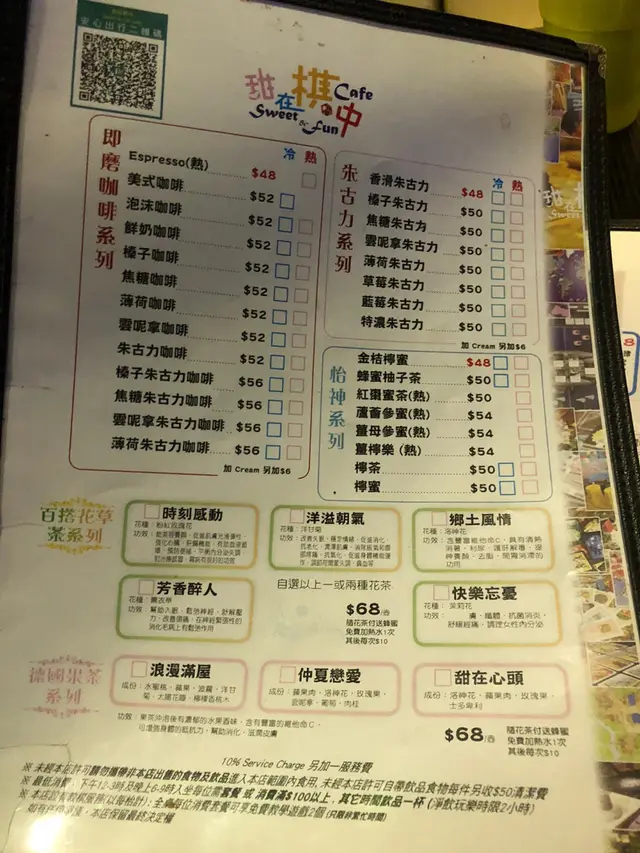 安心出行二維碼
甜在棋中 Cafe
Sweet & Fun
即磨咖啡系列
冷 熱
Espresso(熱) $48
美式咖啡 $52
泡沫咖啡 $52
鮮奶咖啡 $52
榛子咖啡 $52
焦糖咖啡 $52
薄荷咖啡 $52
雲呢拿咖啡 $52
朱古力咖啡 $52
榛子朱古力咖啡 $56
焦糖朱古力咖啡 $56
雲呢拿朱古力咖啡 $56
薄荷朱古力咖啡 $56
加 Cream 另加$6
朱古力系列
冷 熱
香滑朱古力 $48
榛子朱古力 $50
焦糖朱古力 $50
雲呢拿朱古力 $50
薄荷朱古力 $50
草莓朱古力 $50
藍莓朱古力 $50
特濃朱古力 $50
加 Cream 另加$6
怡神系列
金桔檸蜜 $48
蜂蜜柚子茶 $50
紅棗蜜茶(熱) $50
蘆薈參蜜(熱) $54
薑母參蜜(熱) $54
薑檸樂(熱) $54
檸茶 $50
檸蜜 $50
百搭花草茶系列
時刻感動
花種：粉紅玫瑰花
洋溢朝氣
花種：洋甘菊
鄉土風情
花種：洛神花
芳香醉人
花種：薰衣草
功效：幫助入眠、鬆弛神經、舒解壓力、改善頭痛、在神經緊張性的消化毛病上有鬆弛作用
自選以上一或兩種花茶
$68/壺
隨花茶付送蜂蜜
免費加熱水1次
其後每次$10
快樂忘憂
花種：茉莉花
德國果茶系列
浪漫滿屋
成份：水蜜桃、蘋果、菠蘿、洋甘菊、太陽花瓣、檸檬香桃木
仲夏戀愛
成份：蘋果肉、洛神花、玫瑰果、雲呢拿、葡萄、肉桂
甜在心頭
成份：洛神花、蘋果肉、玫瑰果、士多卑利
功效：果茶沖泡後有濃郁的水果香味，含有豐富的維他命C，
可增強身體的抵抗力、幫助消化、滋潤皮膚
$68/壺
隨花茶付送蜂蜜
免費加熱水1次
其後每次$10
10% Service Charge 另加一服務費
※ 未經本店許可請勿攜帶非本店出售的食物及飲品進入本店範圍內食用，未經本店許可自帶飲品食物每件另收$50清潔費
※ 最低消費：下午12-3時及晚上6-9時入坐每位需套餐 或 消費滿$100以上，其它時間飲品一杯 (淨飲玩樂時限2小時)
本店保留最終決定權